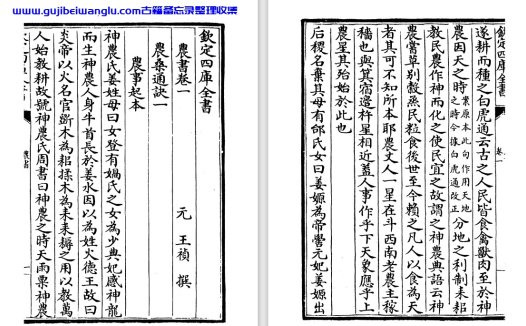 www.gujibeiwanglu.com古籍备忘录整理收集
欽定四庫全書
農書卷一 元 王禎 撰
農桑通訣一
農事起本
神農氏姜姓母曰女登有媧氏之女為少典妃感神龍
而生神農人身牛首長於姜水因以為姓火德王故曰
炎帝以火名官斲木為耜揉木為耒耒耨之用以教萬
人始教耕故號神農氏周書曰神農之時天雨粟神農
欽定四庫全書
卷一
遂耕而種之白虎通云古之人民皆食禽獸肉至於神
農因天之時案原本此句作用天地之時今據白虎通改正分地之利制耒耜
教民農作神而化之使民宜之故謂之神農典語云神
農嘗草別穀烝民粒食後世至今賴之凡人以食為天
者其可不知所本耶農丈人一星在斗西南老農主稼
穡也與其宿邊杵星相近蓋人事作乎下天象應乎上
農星其殆始於此也
后稷名棄其母有邰氏女曰姜嫄為帝嚳元妃姜嫄出